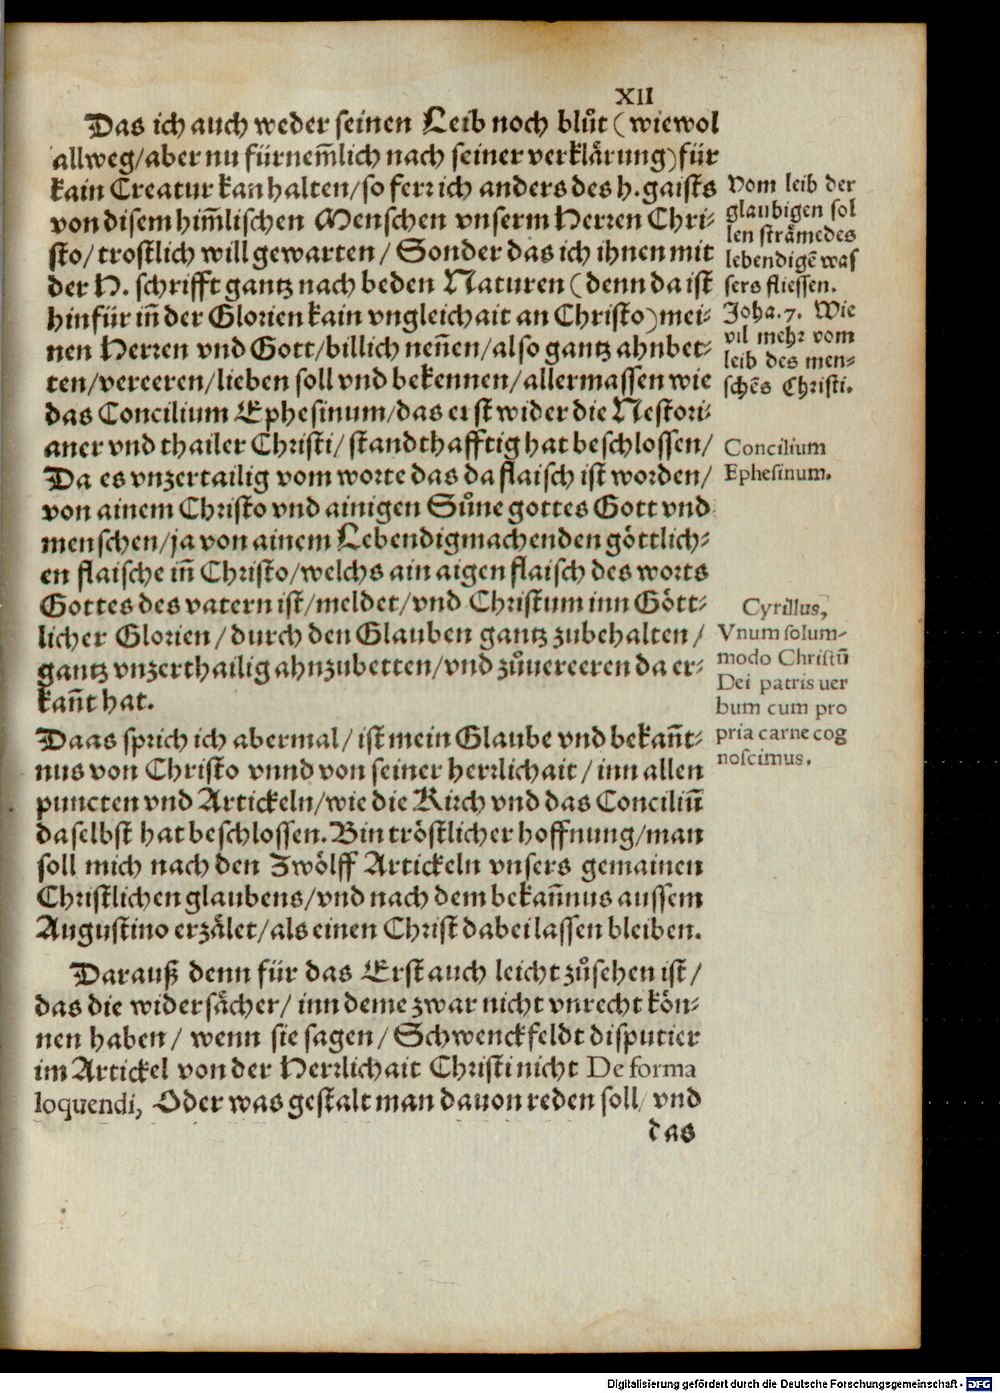 XII
Das ich auch weder seinen Leib noch blůt (wiewol
allweg/aber nu fürnem̃lich nach seiner verklärung) für
kain Creatur kan halten/so ferr ich anders des h. gaists
von disem him̃lischen Menschen vnserm Herren Chri⸗
sto/ trostlich will gewarten/ Sonder das ich ihnen mit
der H. schrifft gantz nach beden Naturen (denn da ist
hinfür iñ der Glorien kain vngleichait an Christo) mei⸗
nen Herren vnd Gott/billich neñen/also gantz ahnbet⸗
ten/vereeren/lieben soll vnd bekennen/allermassen wie
das Concilium Ephesinum/das erst wider die Nestori⸗
aner vnd thailer Christi/ standthafftig hat beschlossen/
Da es vnzertailig vom worte das da flaisch ist worden/
von ainem Christo vnd ainigen Sůne gottes Gott vnd
menschen/ja von ainem Lebendigmachenden göttlich⸗
en flaische iñ Christo/welchs ain aigen flaisch des worts
Gottes des vatern ist/meldet/vnd Christum inn Gött⸗
licher Glorien/durch den Glauben gantz zubehalten/
gantz vnzerthailig ahnzubetten/vnd zůuereeren da er⸗
kañt hat.
Daas sprich ich abermal/ ist mein Glaube vnd bekañt⸗
nus von Christo vnnd von seiner herrlichait/inn allen
puncten vnd Artickeln/wie die Kirch vnd das Conciliũ
daselbst hat beschlossen. Bin tröstlicher hoffnung/man
soll mich nach den Zwölff Artickeln vnsers gemainen
Christlichen glaubens/vnd nach dem bekañnus aussem
Augustino erzälet/als einen Christ dabei lassen bleiben.
Darauß denn für das Erst auch leicht zůsehen ist/
das die widersächer/ inn deme zwar nicht vnrecht kön⸗
nen haben/ wenn sie sagen/ Schwenckfeldt disputier
im Artickel von der Herrlichait Christi nicht De forma
loquendi, Oder was gestalt man dauon reden soll/ vnd
das
Vom leib der
glaubigen sol
len sträme des
lebendigẽ was
sers fliessen.
Joha. 7. Wie
vil mehr vom
leib des men⸗
schẽs Christi.
Concilium
Ephesinum.
Cyrillus,
Vnum solum-
modo Christũ
Dei patris uer
bum cum pro
pria carne cog
noscimus.
Digitalisierung gefördert durch die Deutsche Forschungsgemeinschaft - DFG